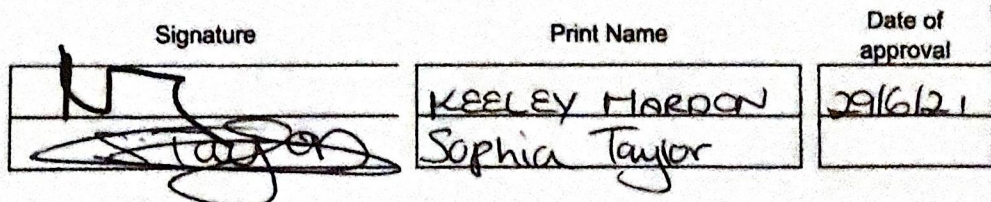 Signature Print Name Date of approval
KEELEY HARDON 29/6/21
STaylor Sophia Taylor